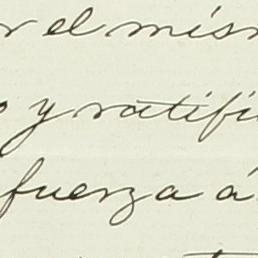 el mism
y ratifi
fuerza á